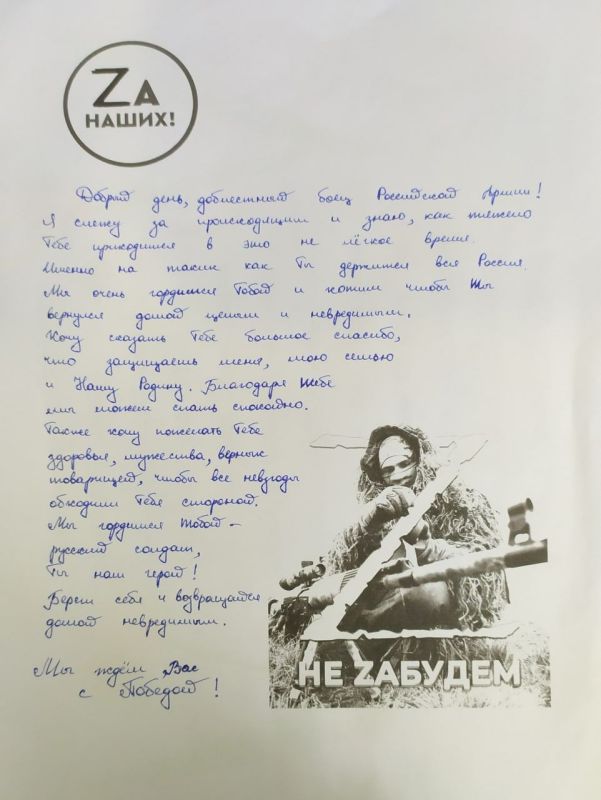 ZA
НАШИХ!
Добрый день, доблестный боец Российской Армии!
Я слежу за происходящим и знаю, как тяжело
Тебе приходится в это не лёгкое время.
Именно на таких как Ты держится вся Россия.
Мы очень гордимся Тобой и хотим чтобы Ты
вернулся домой целым и невредимым.
Хочу сказать Тебе большое спасибо,
что защищаешь меня, мою семью
и Нашу Родину. Благодаря Тебе
мы можем спать спокойно.
Также хочу пожелать Тебе
здоровья, мужества, верных
товарищей, чтобы все невзгоды
обходили Тебя стороной.
Мы гордимся Тобой –
русский солдат,
Ты наш герой!
Береги себя и возвращайся
домой невредимым.
Мы ждём Вас
с Победой!
НЕ ZАБУДЕМ